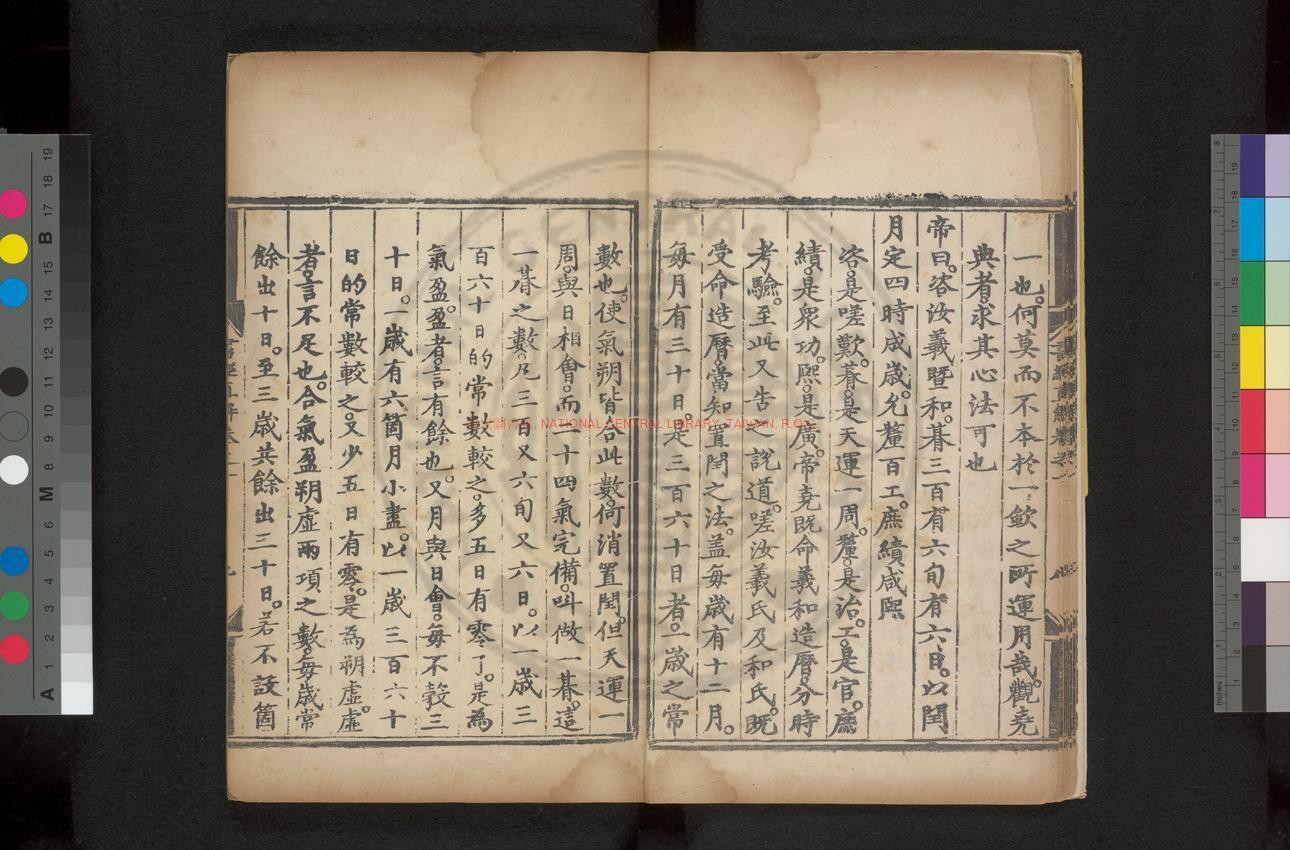 一也。何莫而不本於一欽之所運用哉。觀堯
典者。求其心法可也
帝曰。咨汝羲暨和。朞三百有六旬有六日。以閏
月定四時成歲。允釐百工。庶績咸熙
咨。是嗟歎。朞。是天運一周。釐。是治。工。是官。庶
績。是衆功。熙。是廣。帝堯既命羲和造曆。分時
考驗。至此又告之說道。嗟汝羲氏及和氏。既
受命造曆。當知置閏之法。盖每歲有十二月。
每月有三十日。是三百六十日者。一歲之常
數也。使氣朔皆合此數。何消置閏。但天運一
周。與日相會。而二十四氣完備。叫做一朞。這
一朞之數。凡三百又六旬又六日。以一歲三
百六十日的常數較之。多五日有零了。是為
氣盈。盈者。言有餘也。又月與日會。每不彀三
十日。一歲有六箇月小盡。以一歲三百六十
日的常數較之。又少五日有零。是為朔虛。虛
者。言不足也。合氣盈朔虛兩項之數。每歲常
餘出十日。至三歲共餘出三十日。若不設箇
NATIONAL CENTRAL LIBRARY, TAIWAN, R.O.C.